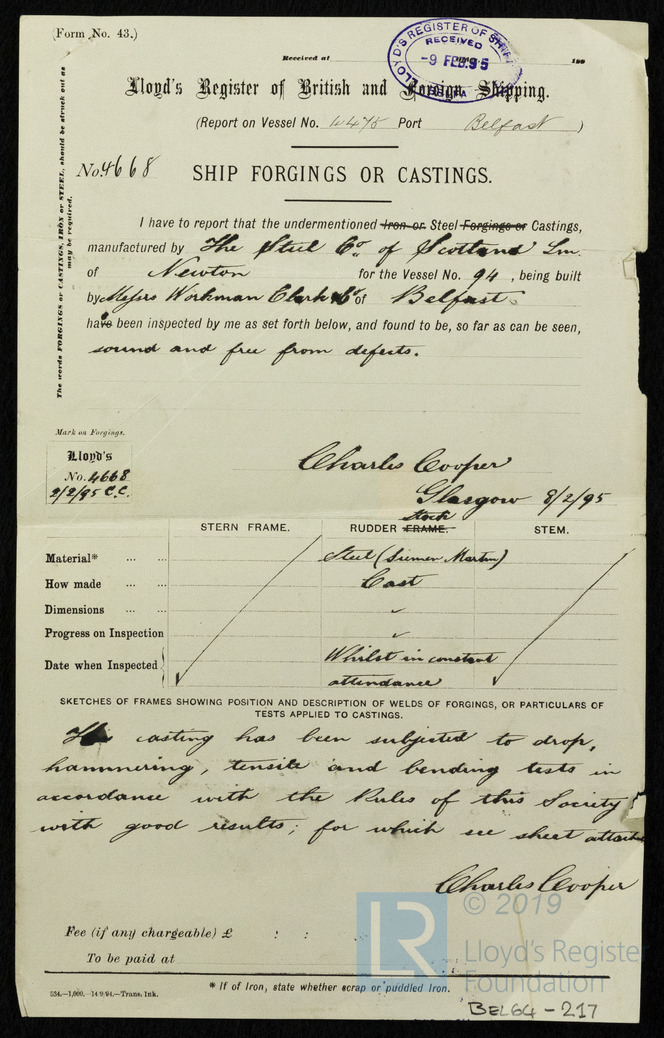 (Form No. 43.)
Received at 189
LLOYD'S REGISTER OF SHIPPING
RECEIVED
-9 FEB.95
BELFAST
Lloyd's Register of British and Foreign Shipping.
(Report on Vessel No. Port Belfast )
No. 4668 SHIP FORGINGS OR CASTINGS.
The words FORGINGS or CASTINGS, IRON or STEEL, should be struck out as
may be required.
I have to report that the undermentioned Iron or Steel Forgings or Castings,
manufactured by The Steel Co. of Scotland Lim.
of Newton for the Vessel No. 94, being built
by Messrs Workman Clark & Co of Belfast.
have been inspected by me as set forth below, and found to be, so far as can be seen,
sound and free from defects.
Mark on Forgings.
Lloyd's
No. 4668
2/2/95 C.C.
Charles Cooper
Glasgow 8/2/95
STERN FRAME. RUDDER FRAME. stock STEM.
Material* ... ... Steel (Siemen Martin)
How made ... ... Cast
Dimensions ... ... "
Progress on Inspection "
Date when Inspected Whilst in constant
attendance
SKETCHES OF FRAMES SHOWING POSITION AND DESCRIPTION OF WELDS OF FORGINGS, OR PARTICULARS OF
TESTS APPLIED TO CASTINGS.
This casting has been subjected to drop,
hammering, tensile and bending tests in
accordance with the Rules of this Society
with good results; for which see sheet attach
Charles Cooper
Fee (if any chargeable) £ : :
To be paid at
* If of Iron, state whether scrap or puddled Iron.
534.—1,000.—14/9/94.—Trans. Ink.
LR
© 2019
Lloyd's Register
Foundation
BEL64-217